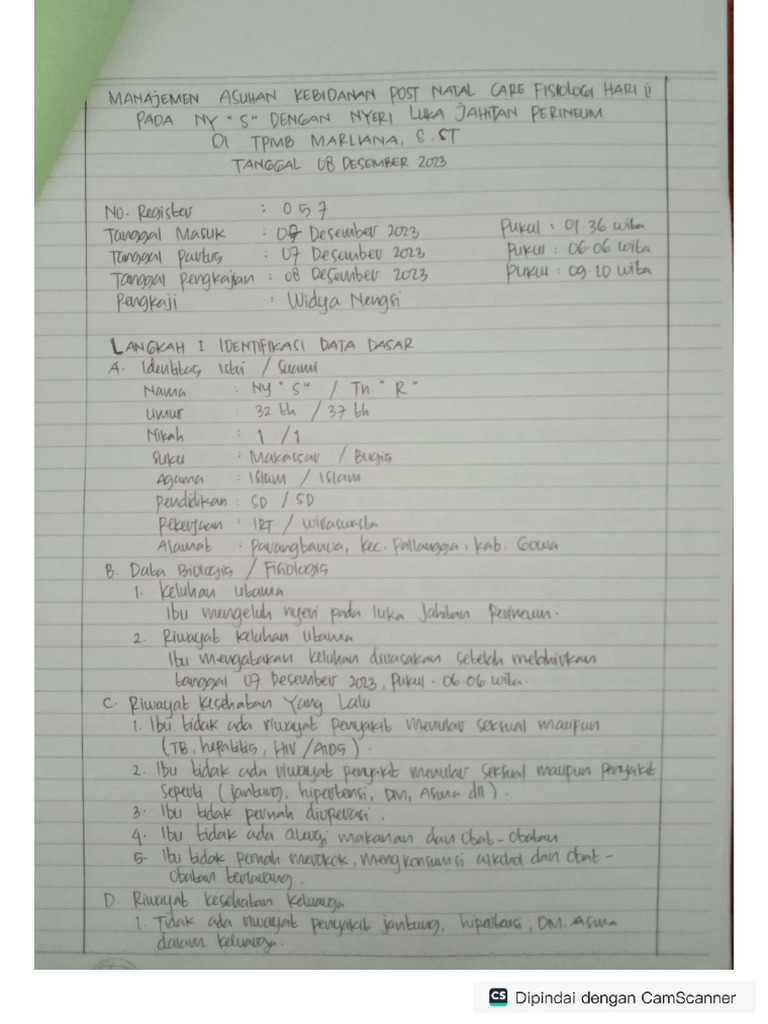 MANAJEMEN ASUHAN KEBIDANAN POST NATAL CARE FISIOLOGI HARI II
PADA NY "S" DENGAN NYERI LUKA JAHITAN PERINEUM
DI TPMB MARLIANA, S.ST
TANGGAL 08 DESEMBER 2023
No. Register : 057
Tanggal Masuk : 07 Desember 2023 Pukul : 01.36 wita
Tanggal Partus : 07 Desember 2023 Pukul : 06.06 wita
Tanggal Pengkajian : 08 Desember 2023 Pukul : 09.10 wita
Pengkaji : Widya Nengsi
LANGKAH I IDENTIFIKASI DATA DASAR
A. Identitas Istri / Suami
Nama : Ny "S" / Tn "R"
Umur : 32 th / 37 th
Nikah : 1 / 1
Suku : Makassar / Bugis
Agama : Islam / Islam
Pendidikan : SD / SD
Pekerjaan : IRT / wiraswasta
Alamat : Parangbanoa, Kec. Pallangga, Kab. Gowa
B. Data Biologis / Fisiologis
1. Keluhan utama
Ibu mengeluh nyeri pada luka Jahitan Perineum.
2. Riwayat Keluhan Utama
Ibu mengatakan keluhan dirasakan setelah melahirkan
tanggal 07 Desember 2023, Pukul - 06.06 wita.
C. Riwayat Kesehatan Yang Lalu
1. Ibu tidak ada riwayat penyakit menular seksual maupun
(TB, hepatitis, HIV/AIDS).
2. Ibu tidak ada riwayat penyakit menular seksual maupun penyakit
seperti (jantung, hipertensi, DM, Asma dll).
3. Ibu tidak pernah dioperasi.
4. Ibu tidak ada alergi makanan dan Obat-Obatan
5. Ibu tidak pernah merokok, mengkonsumsi alkohol dan obat-
Obatan terlarang.
D. Riwayat kesehatan Keluarga
1. Tidak ada riwayat penyakit jantung, hipertensi, DM, Asma
dalam keluarga.
CS Dipindai dengan CamScanner